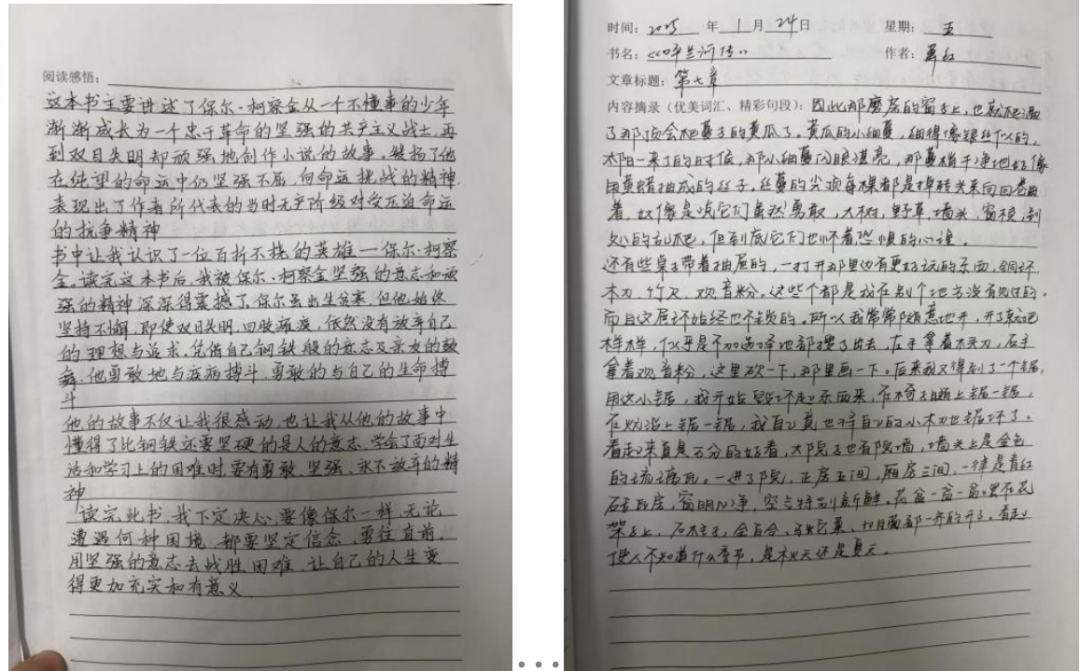 阅读感悟：
这本书主要讲述了保尔·柯察金从一个不懂事的少年
渐渐成长为一个忠于革命的坚强的共产主义战士，再
到双目失明却顽强地创作小说的故事，颂扬了他
在绝望的命运中仍坚强不屈，向命运挑战的精神，
表现出了作者所代表的当时无产阶级对受压迫命运
的抗争精神
书中让我认识了一位百折不挠的英雄—保尔·柯察
金。读完这本书后，我被保尔·柯察金坚强的意志和顽
强的精神深深得震撼了，保尔虽出生贫寒，但他始终
坚持不懈，即使双目失明，四肢瘫痪，依然没有放弃自己
的理想与追求，凭借自己钢铁般的意志及亲友的鼓
舞，他勇敢地与疾病搏斗，勇敢的与自己的生命搏
斗
他的故事不仅让我很感动，也让我从他的故事中
懂得了比钢铁还要坚硬的是人的意志，学会了面对生
活和学习上的困难时，要有勇敢、坚强、永不放弃的精
神
读完此书，我下定决心，要像保尔一样，无论
遭遇何种困境，都要坚定信念，勇往直前，
用坚强的意志去战胜困难，让自己的人生变
得更加充实和有意义
时间：2025 年 1 月 24 日 星期：五
书名：《呼兰河传》 作者：萧红
文章标题：第七章
内容摘录（优美词汇、精彩句段）：因此那磨房的窗子上，也就爬满
了那顶会爬蔓子的黄瓜了。黄瓜的小细蔓，细得像银丝似的，
太阳一来了的时候，那小细蔓闪眼湛亮，那蔓梢干净地好像
用黄蜡抽成的丝子，丝蔓的尖顶每棵都是掉转头来向回卷曲
着，好像是说它们虽然勇敢，大树，野草，墙头，窗棂，到
处的乱爬，但到底它们也怀着恐惧的心理。
还有些桌子带着抽屉的，一打开那里边有更好玩的东西，铜环、
木刀、竹尺、观音粉。这些个都是我在别个地方没有见过的。
而且这屉环始终也不锁的。所以我常常随意地开，开了就把
样样，似乎是不加选择地都搜了出去，左手拿着木头刀，右手
拿着观音粉，这里砍一下，那里画一下。后来我又得到了一个小锯，
用这小锯，我开始毁坏起东西来，在椅子腿上锯一锯，
在炕沿上锯一锯，我自己竟也将自己的小木刀也锯坏了。
看起来真是万分的好看，大院子也有院墙，墙头上是金色
的琉璃瓦。一进了院，正房五间，厢房三间，一律是青红
砖瓦房，窗明几净，空气特别新鲜。花盆一盆一盆的摆在花
架子上，石柱子，全百合，马蛇菜，扣月菊都一齐的开了。看起
使人不知道什么季节，是秋天还是夏天。